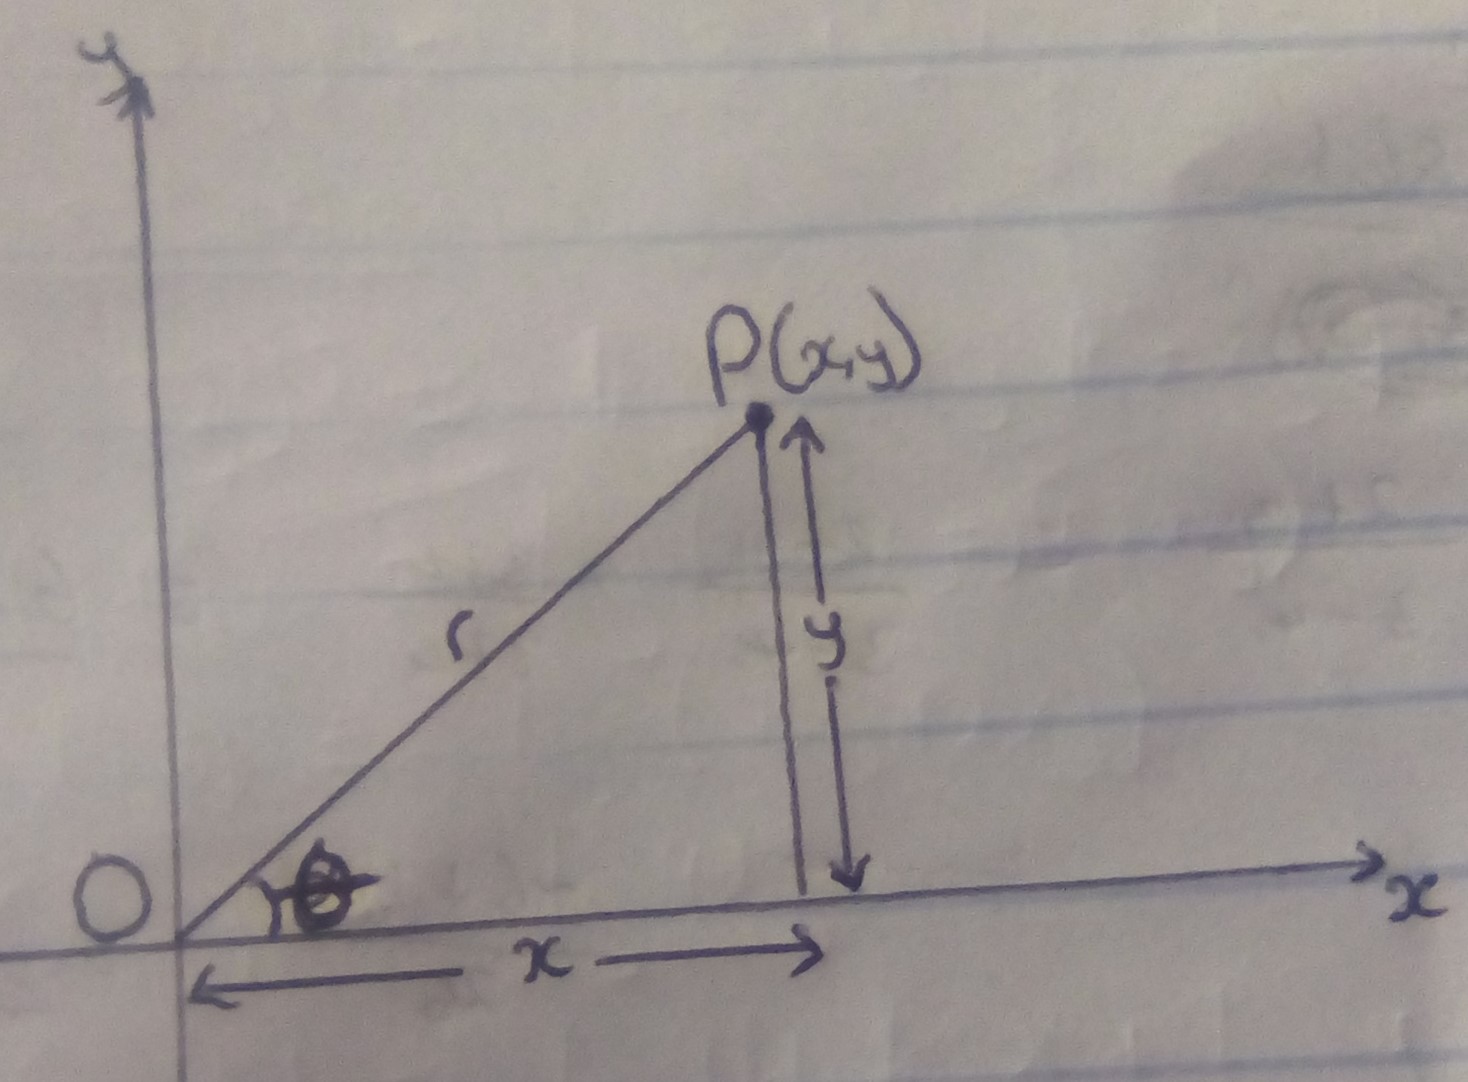 y
P(x,y)
r
y
O
θ
x
x